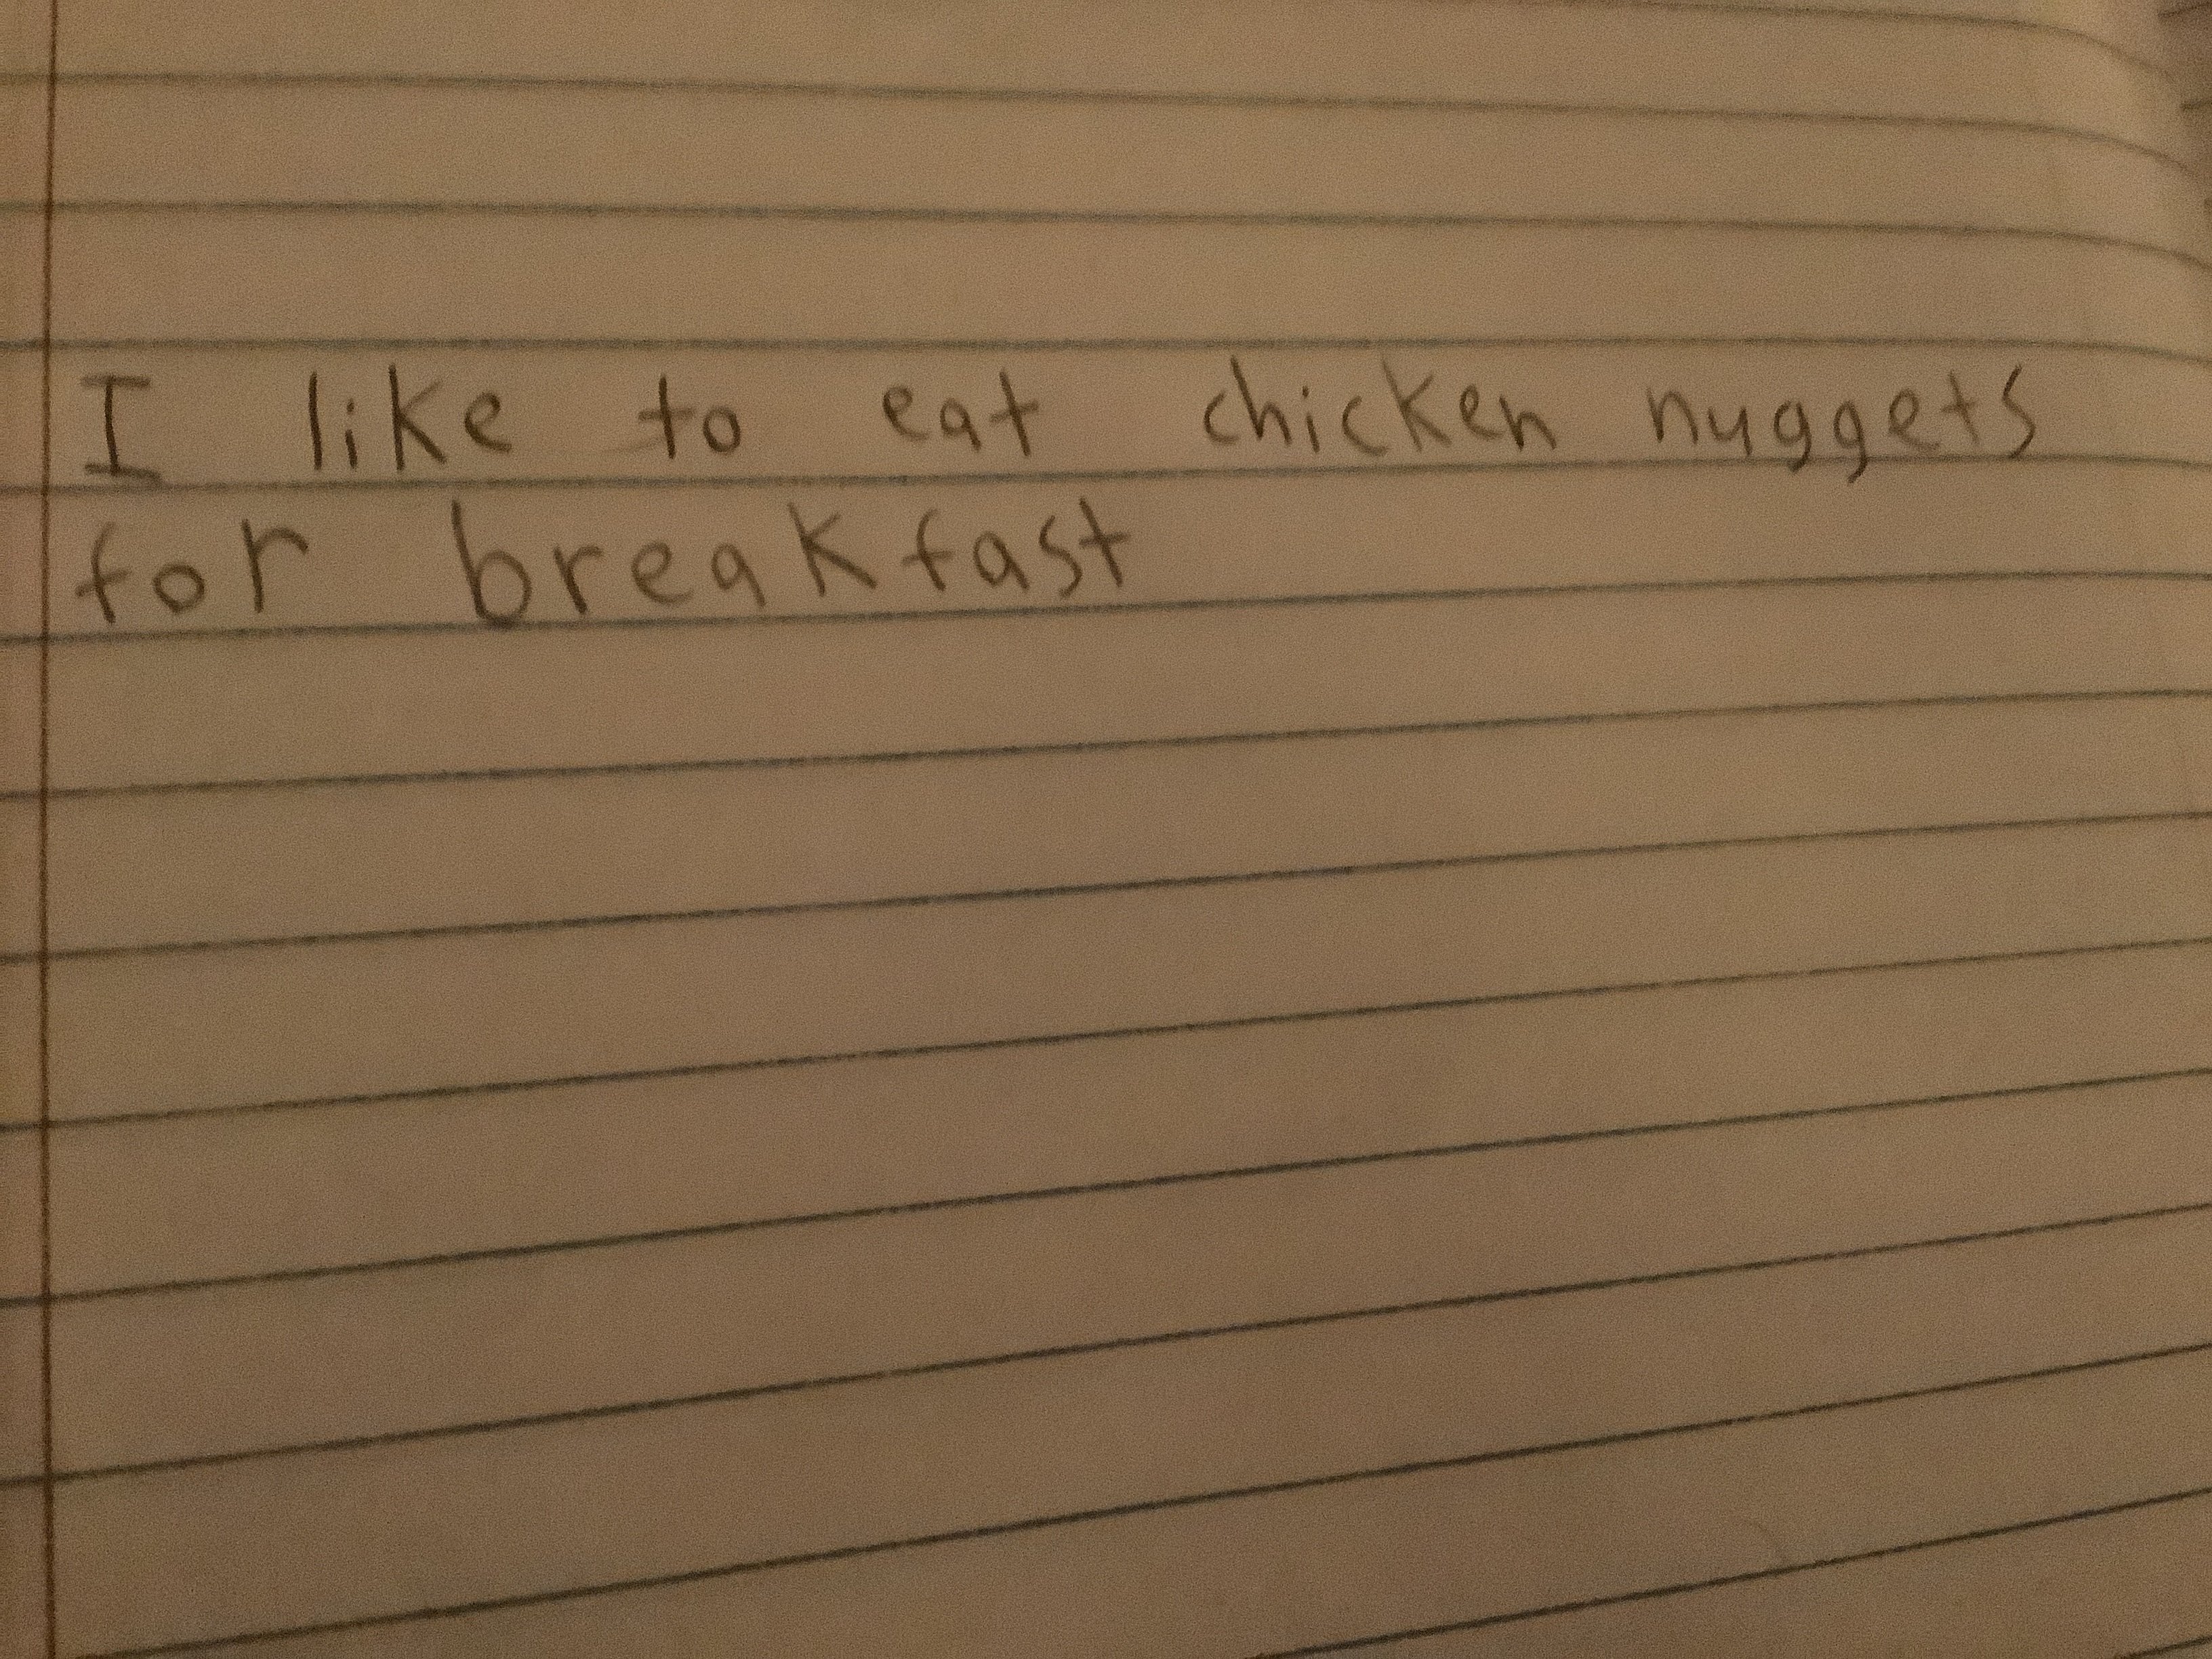 I like to eat chicken nuggets
for breakfast